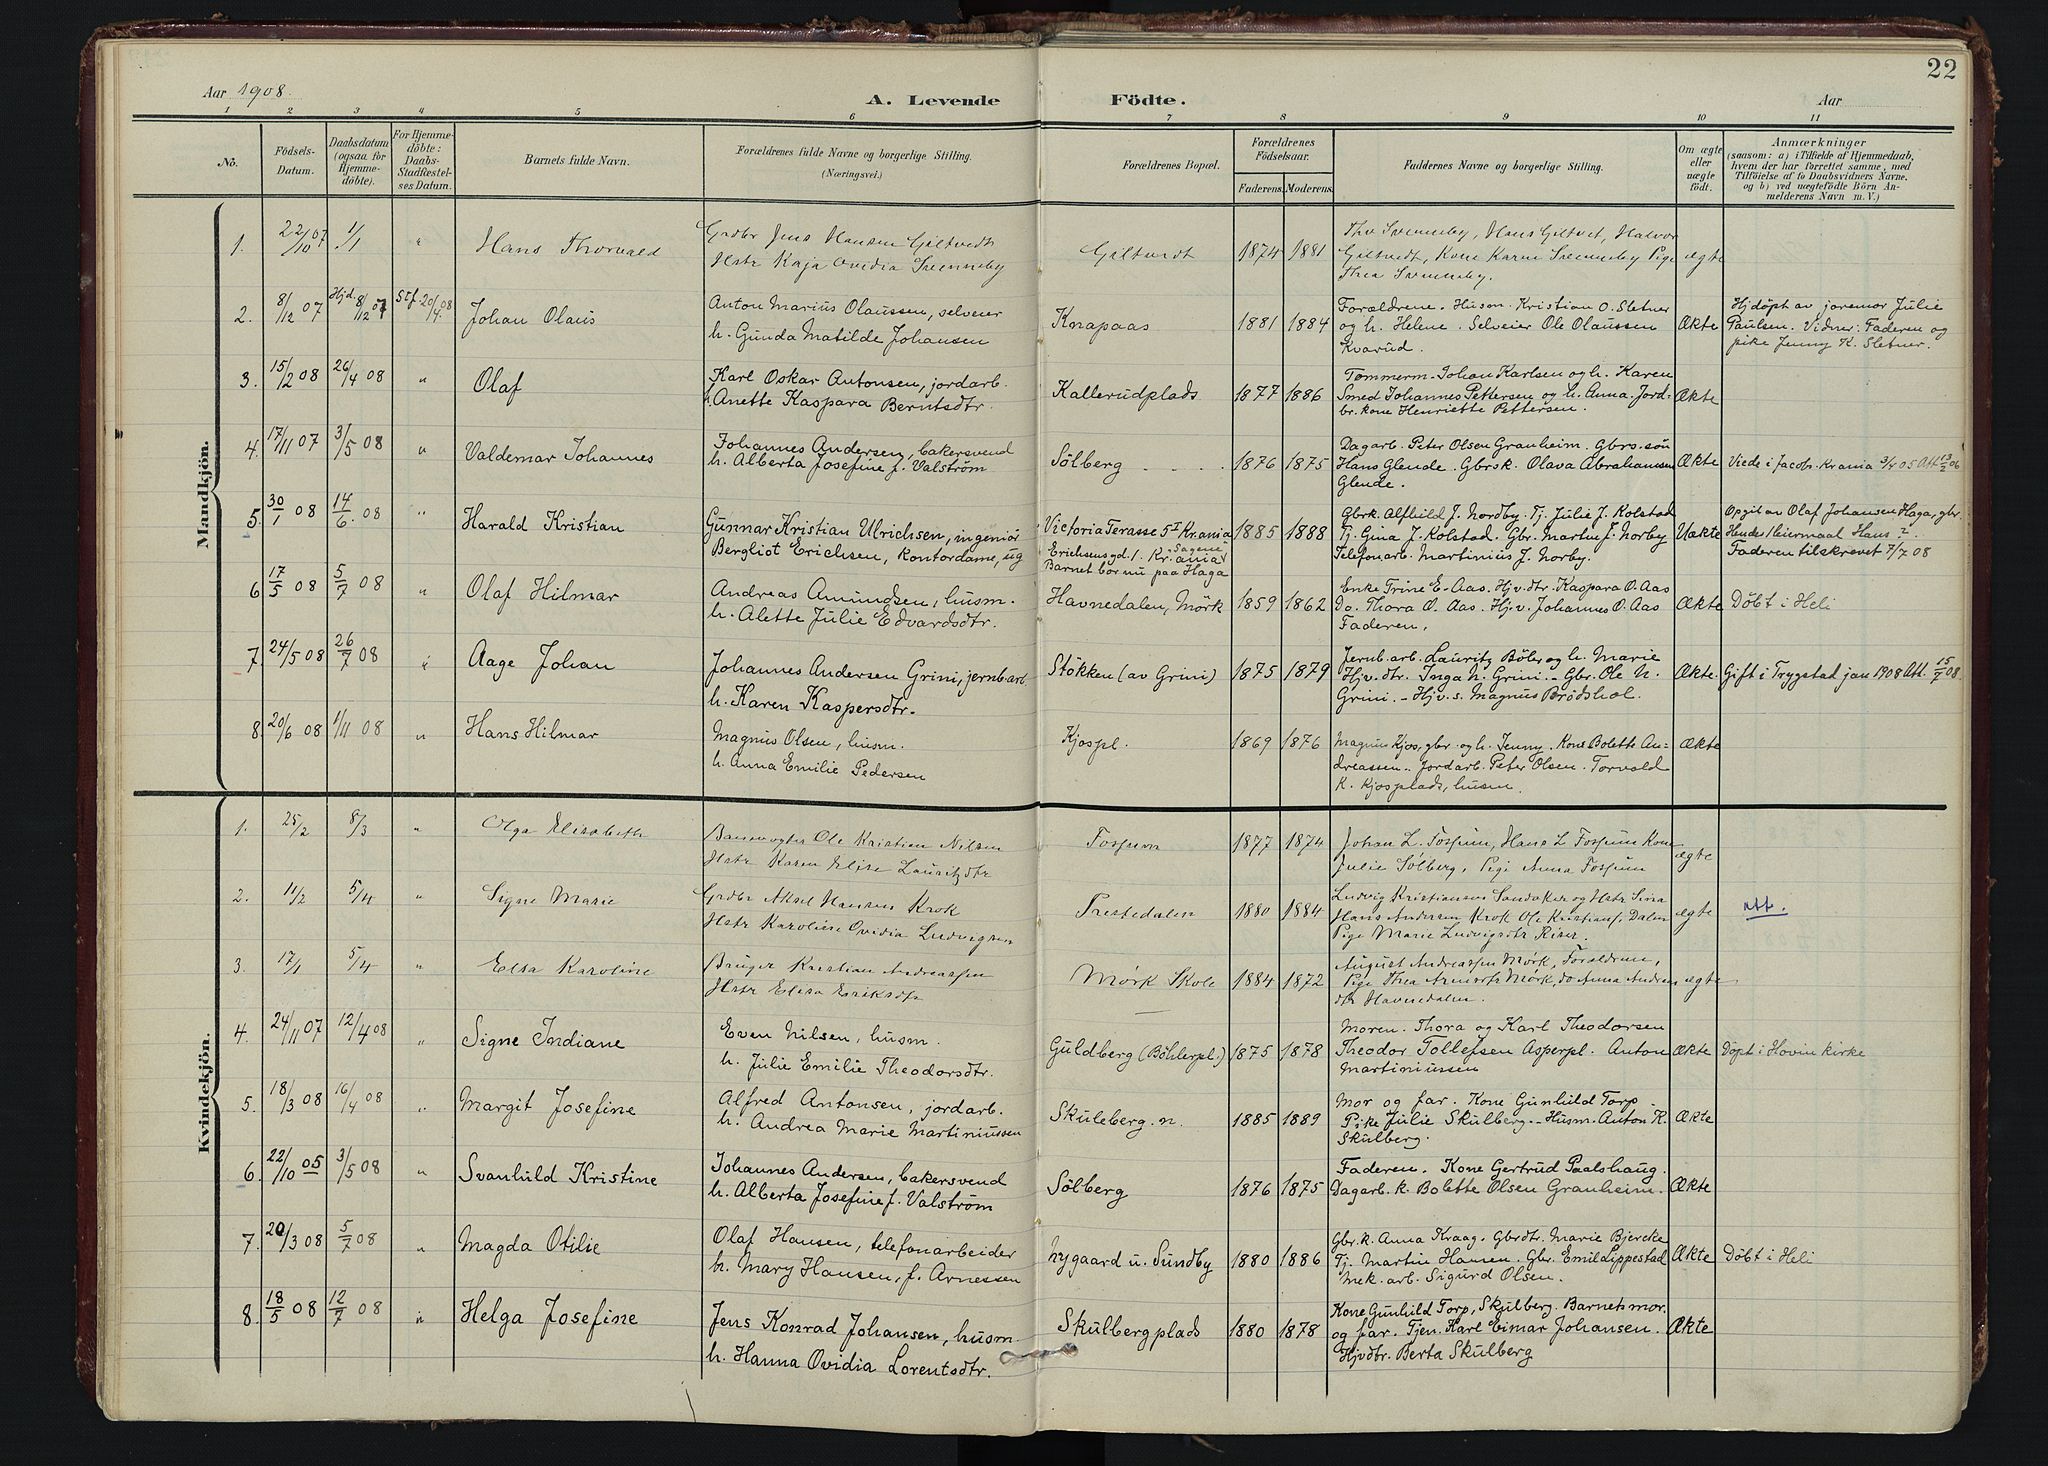 22
Aar 1908.
A. Levende Födte.
Aar
1 2 3 4 5 6 7 8 9 10 11
No.
Födsels-
Datum.
Daabsdatum
(ogsaa for
Hjemme-
döbte).
For Hjemme-
döbte:
Daabs-
Stadfæstel-
ses Datum.
Barnets fulde Navn.
Forældrenes fulde Navne og borgerlige Stilling.
(Næringsvei.)
Forældrenes Bopæl.
Forældrenes
Födselsaar.
Faderens. Moderens.
Faddernes Navne og borgerlige Stilling.
Om ægte
eller
uægte
födt.
Anmærkninger
(saasom: a) i Tilfælde af Hjemmedaab,
hvem der har forrettet samme, med
Tilföielse af to Daabsvidners Navne,
og b) ved uægtefödte Börn An-
melderens Navn m. V.)
Mandkjön.
1. 22/10 07 1/1 " Hans Thorvald
Grdbr Jens Hansen Giltvedt
Hstr Kaja Ovidia Svenneby
Giltvedt 1874 1881
Thv Svenneby, Hans Giltvet, Halvor
Giltvedt, Kone Karne Svenneby Pige
Thea Svenneby.
ægte
2. 8/12 07 Hjd. 8/12 07 Stf. 20/4 08 Johan Olaus
Anton Marius Olaussen, selveier
h. Gunda Matilde Johansen
Knapaas 1881 1884
Forældrene. Husm. Kristian O. Sletner
og h. Helene. Selveier Ole Olaussen
Kvarud.
Ækte
Hjdöpt av jordmor Julie
Paulsen. Vidner: Faderen og
pike Jenny K. Sletner.
3. 15/2 08 26/4 08 " Olaf
Karl Oskar Antonsen, jordarb.
h. Anette Kaspara Berntsdtr.
Kallerudplads 1877 1886
Tømmerm. Johan Karlsen og h. Karen
Smed Johannes Pettersen og h. Anna. Jord-
br. kone Henriette Pettersen.
Ækte
4. 17/11 07 3/5 08 " Valdemar Johannes
Johannes Andersen, bakersvend
h. Alberta Josefine f. Valström
Sölberg 1876 1875
Dagarb. Peter Olsen Granheim. Gbrs. søn
Hans Glende. Gbrsk. Olava Abrahamsen
Glende.
Ækte
Viede i Jacobs. Krania 3/4 05 Att 13/2 06
5. 30/1 08 14/6 08 " Harald Kristian
Gunnar Kristian Ulrichsen, ingeniör
Bergliot Erichsen, kontordame, ug
Victoria Terasse 5 I Kr.ania
Erichsensgd. 1. Kr.ania Sagene
Barnet bor nu paa Haga
1885 1888
Gbrk. Alfhild J. Nordby. Tj. Julie J. Kolstad
Tj. Gina J. Kolstad. Gbr. Martin J. Norby
Telefonarb. Martinius J. Norby.
Uækte
Opgit av Olaf Johansen Haga, gbr.
Hendes Heirmaal Hans ?.
Faderen tilskrevet 7/7 08
6 17/5 08 5/7 08 " Olaf Hilmar
Andreas Amundsen, husm.
h. Alette Julie Edvardsdtr.
Havnedalen, Mörk 1859 1862
Enke Trine E. Aas. Hjv. dtr. Kaspara O. Aas
Do. Thora O. Aas. Hjv. Johannes O. Aas
Faderen.
Ækte
Döbt i Heli
7. 24/5 08 26/7 08 " Aage Johan
Johannes Andersen Grini, jernb. arb.
h. Karen Kaspersdtr.
Stökken (av Grini) 1875 1879
Jernb. arb. Lauritz Böler og h. Marie
Hjv. dtr. Inga N. Grini. - Gbr. Ole N.
Grini. - Hjv. s. Magnus Brödshol.
Ækte.
Gift i Trygstad jan 1908 Att. 15/7 08.
8. 20/6 08 1/11 08 " Hans Hilmar
Magnus Olsen, husm.
h. Anna Emilie Pedersen
Kjospl. 1869 1876
Magnus Kjos, gbr. og h. Jenny. Kone Bolette An-
dreassen. Jordarb. Peter Olsen. Torvald
K. Kjosplads, husm.
Ækte
Kvindekjön.
1. 25/2 8/3 " Olga Elisabeth
Banevogter Ole Kristian Nilsen
Hstr Karen Elise Lauritzdtr
Fossum 1877 1874
Johan L. Fossum, Hans L Fossum Kone
Julie Sølberg, Pige Anna Fossum
ægte
2. 11/2 5/4 " Signe Marie
Grdbr Aksel Hansen Krok
Hstr Karoline Ovidia Ludvigsen
Prestedalen 1880 1884
Ludvig Kristiansen Sandaker og Hstr Sina
Hans Andersen Krok Ole Kristians. Dalen
Pige Marie Ludvigsdtr Riser.
ægte
Att.
3. 17/1 5/4 " Elsa Karoline
Bruger Kristian Andreassen
Hstr Elisa Eriksdtr
Mørk Skole 1884 1872
August Andreassen Mørk, Forældrene,
Pige Thea Arnesdtr Mørk, do Anna Andreas
dtr Havnedalen.
ægte
4. 24/11 07 12/4 08 " Signe Indiane
Even Nilsen, husm.
h. Julie Emilie Theodorsdtr.
Guldberg (Böhlerpl.) 1875 1878
Moren. Thora og Karl Theodorsen
Theodor Tollefsen Asperpl. Anton
Martiniussen
Ækte
Döpt i Hovin kirke
5. 18/3 08 16/4 08 " Margit Josefine
Alfred Antonsen, jordarb.
h. Andrea Marie Martiniussen
Skuleberg. n. 1885 1889
Mor og far. Kone Gunhild Torp
Pike Julie Skulberg. - Husm. Anton K.
Skulberg.
Ækte
6. 22/10 05 3/5 08 " Svanhild Kristine
Johannes Andersen, bakersvend
h. Alberta Josefine f. Valström
Sölberg 1876 1875
Faderen. Kone Gertrud Paalshaug.
Dagarb. k. Bolette Olsen Granheim.
Ækte
7. 20/3 08 5/7 08 " Magda Otilie
Olaf Hansen, telefonarbeider
h. Mary Hansen, f. Arnessen
Nygaard u. Sundby 1880 1886
Gbr. k. Anna Kraag. Gbrdtr. Marie Bjercke
Tj. Martin Hansen. Gbr. Emil Lippestad
Mek. arb. Sigurd Olsen.
Ækte
Döbt i Heli
8. 18/5 08 12/7 08 " Helga Josefine
Jens Konrad Johansen, husm.
h. Hanna Ovidia Lorentsdtr.
Skulbergplads 1880 1878
Kone Gunhild Torp, Skulberg. Barnets mor
og far. Tjen. Karl Eimar Johansen.
Hjvdtr. Berta Skulberg
Ækte